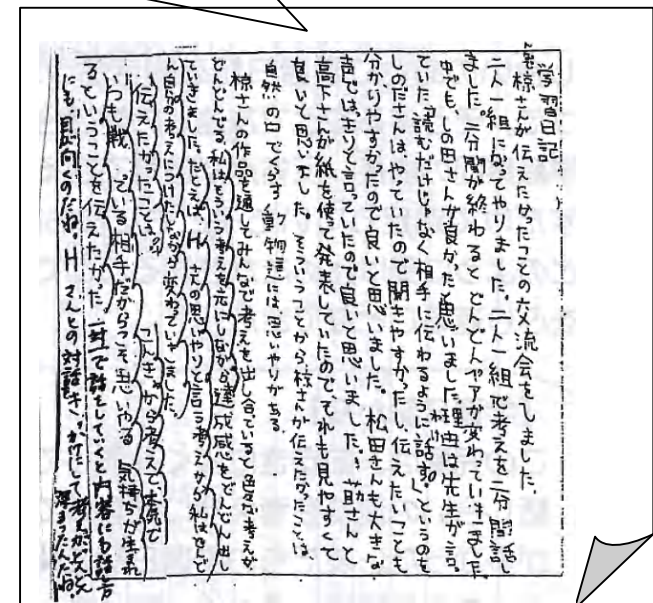 学習日記
椋さんが伝えたかったことの交流会をしました。
二人一組になってやりました。二人一組で考えを二分間話し
ました。二分間が終わるとどんどんペアが変わっていきました。
中でも、しの田さんが良かったと思いました。理由は先生が言っ
ていた、読むだけじゃなく相手に伝わるように話す。というのを
しのださんは、やっていたので聞きやすかったし、伝えたいことも
分かりやすかったので良いと思いました。松田さんも大きな
声ではっきりと言っていたので良いと思いました。さんと
高下さんが紙を使って発表していたので、それも見やすくて
良いと思いました。そういうことから椋さんが伝えたかったことは、
自然の中でくらす動物達には思いやりがある。
椋さんの作品を通してみんなで考えを出し合っていると色々な考えが
どんどんでる。私はそういう考えを元にしながら達成感をどんどん出し
ていきました。たとえば、Hさんの思いやりと言う考えから私はどんど
ん自分の考えにつけたしながら変わっていきました。
伝えたかったことは、から考えて本気で
いつも戦っている相手だからこそ思いやる気持ちが生まれ
るということを伝えたかった。一対一で話をしていくと内容にも話し方
にも目が向くのだね。Hさんとの対話をきっかけにして考えがどんどん
深まったんだね。